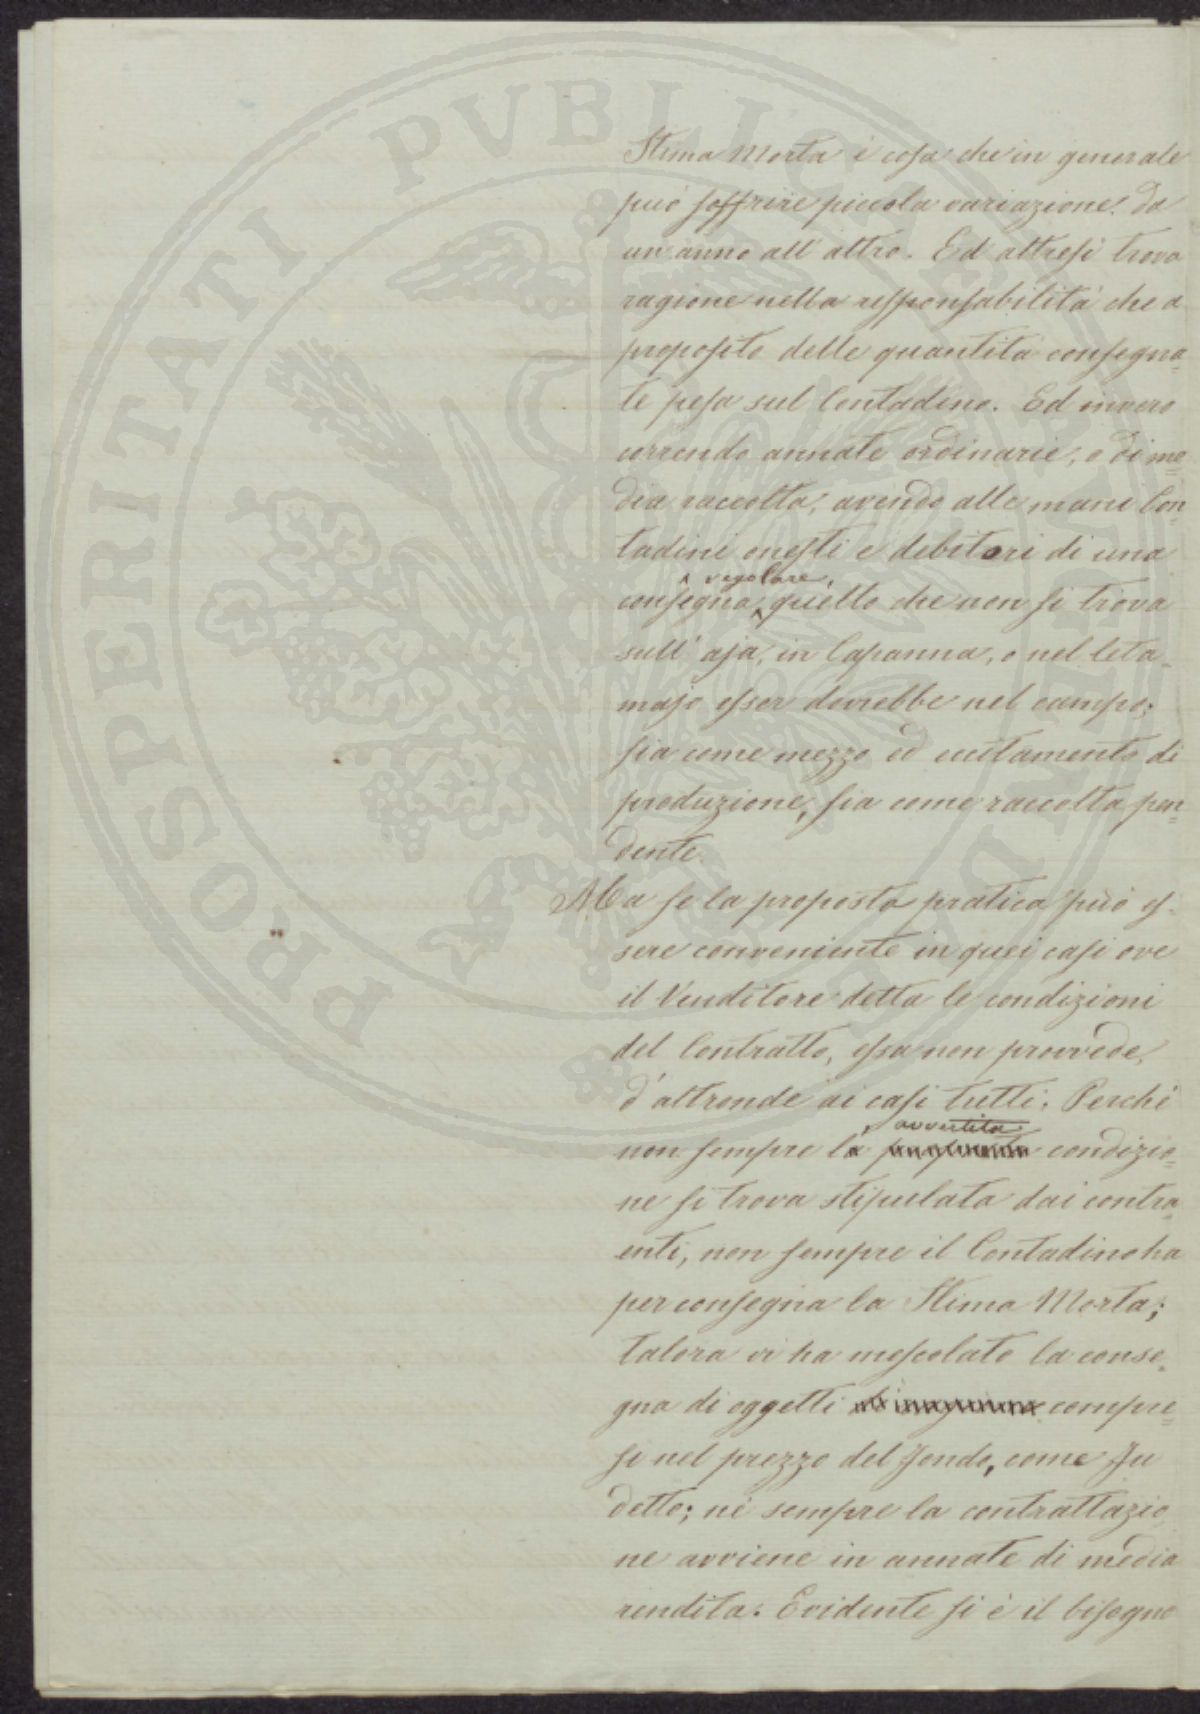 Stima Morta è cosa che in generale
può soffrire piccola variazione da
un anno all'altro. Ed altresì trova
ragione nella responsabilità che a
proposito delle quantità consegna=
te pesa sul Contadino. Ed invero
correndo annate ordinarie, o di me=
dia raccolta, avendo alle mani Con=
tadini onesti e debitori di una
consegna regolare, quello che non si trova
sull'aja, in Capanna, o nel leta=
majo esser dovrebbe nel campo;
sia come mezzo ed eccitamento di
produzione, sia come raccolta pen=
dente.
Ma se la proposta pratica può es=
sere conveniente in quei casi ove
il Venditore detta le condizioni
del Contratto, essa non provvede,
d'altronde ai casi tutti. Perchè
non sempre la avvertita condizio=
ne si trova stipulata dai contra=
enti, non sempre il Contadino ha
per consegna la Stima Morta;
talora vi ha mescolato la conse=
gna di oggetti compre=
si nel prezzo del fondo, come fu
detto; nè sempre la contrattazio
ne avviene in annate di media
rendita. Evidente si è il bisogno
PROSPERITATI PUBLICAE